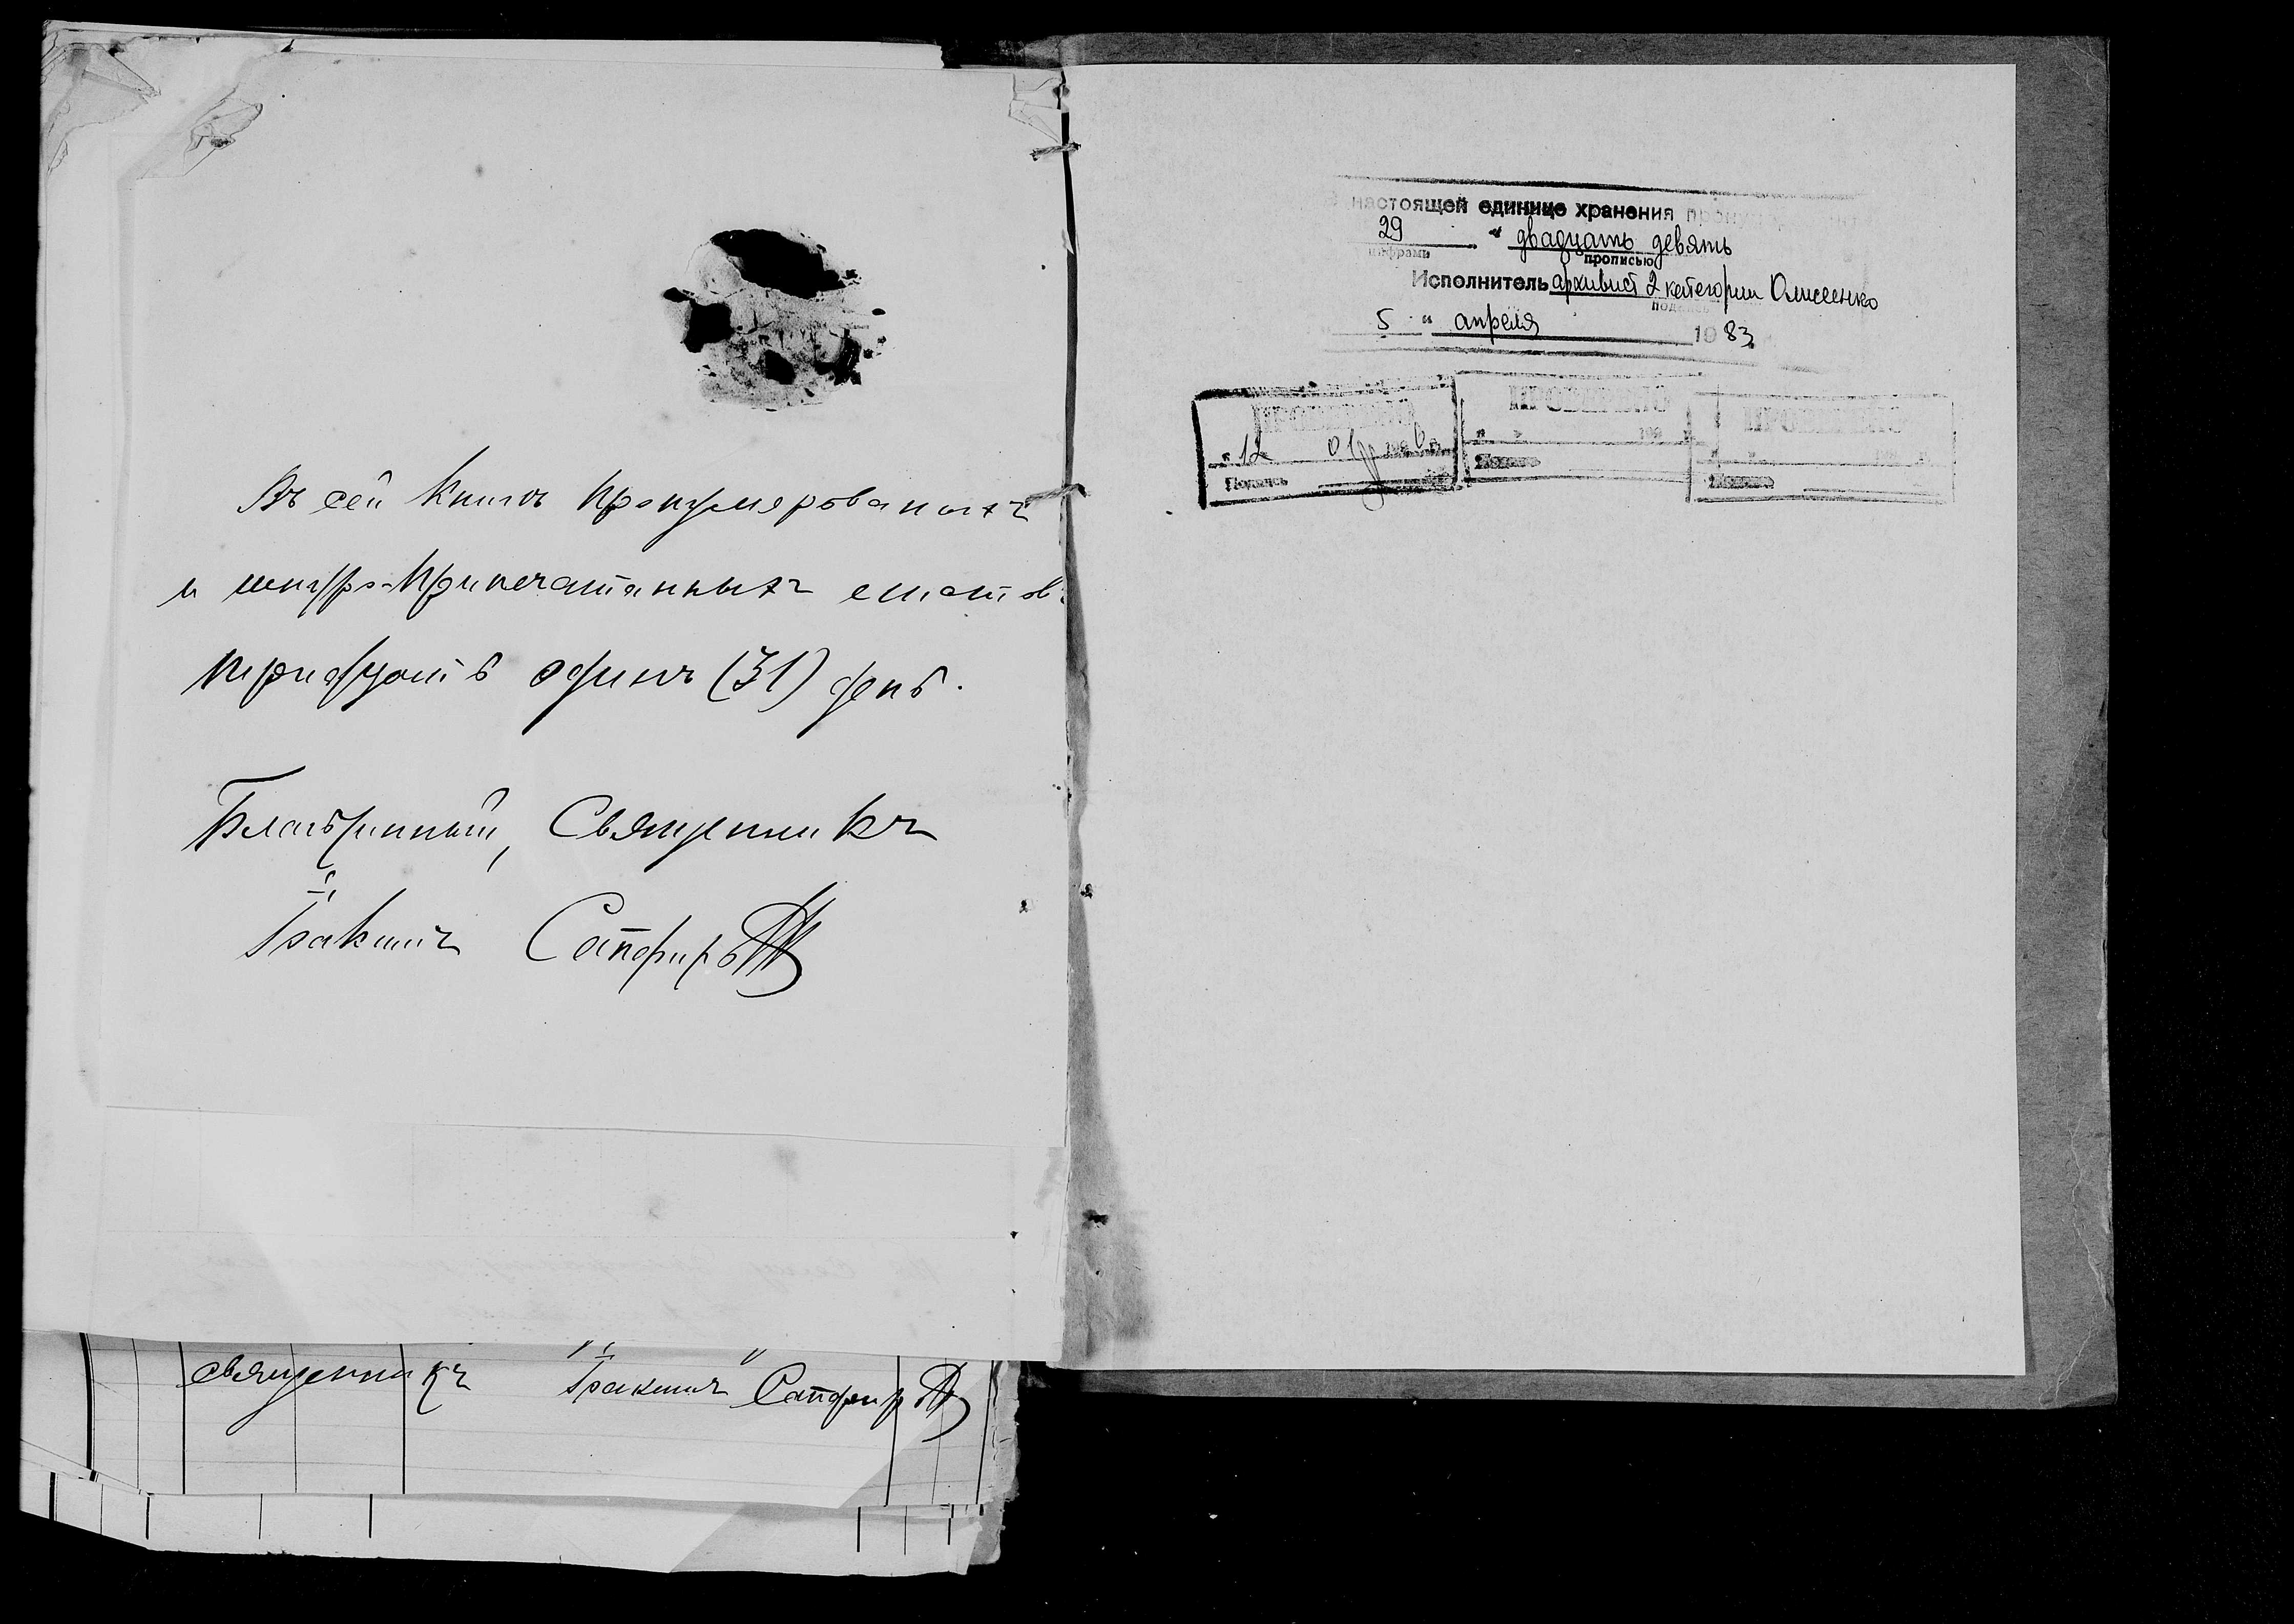 Въ сей Книгѣ пронумерованныхъ
и шнуро-припечатанныхъ листовъ
тридцать одинъ (31) день.
Благочинный, Священникъ
Іоакимъ Сапфировъ
священникъ Іоакимъ Сапфировъ
настоящей единице хранения
29 " двадцать девять
цифрами прописью
Исполнитель архивист 2 категории
подпись
5 " апреля 1983
ПРОВЕРЕНО
" 12 199 г.
Подпись
ПРОВЕРЕНО
" " 199
Подпись
ПРОВЕРЕНО
" " 199 г.
Подпись